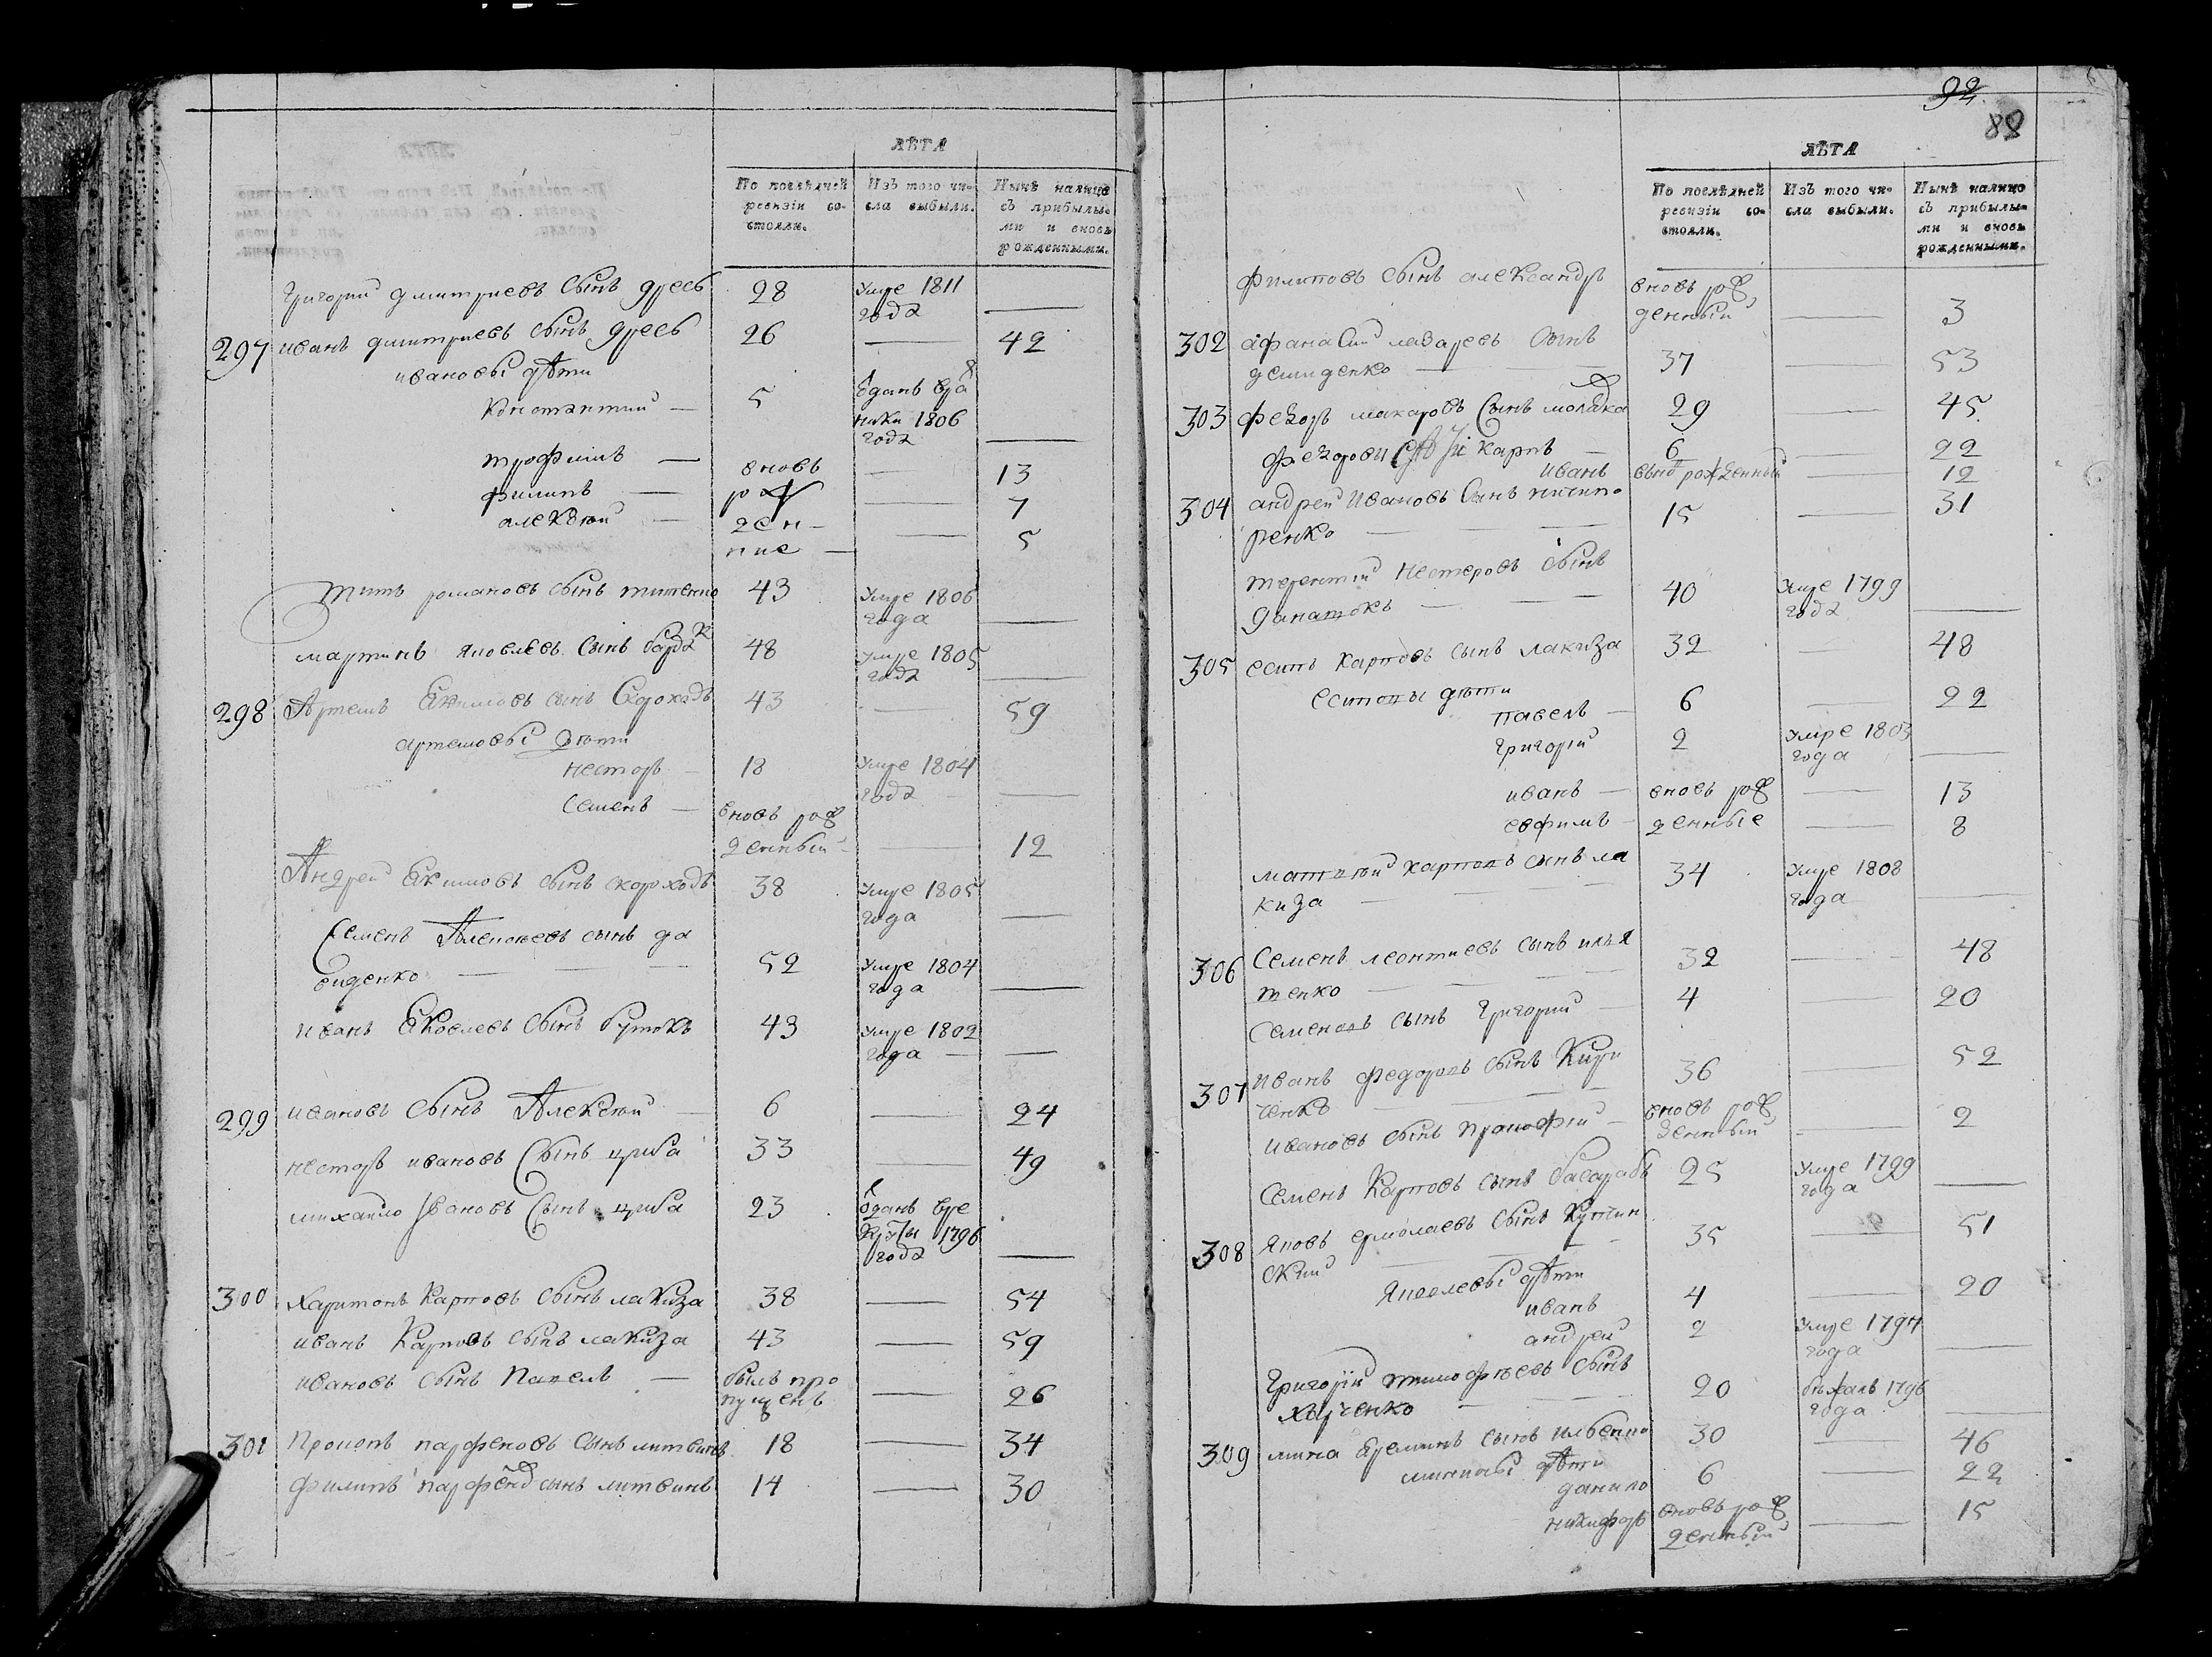 ЛѢТА
По послѣдней ревизіи состояли.
Изъ того числа выбыли.
Нынѣ налицо съ прибылыми и вновь рожденными.
Григорий дмитриевъ сынъ 28 умре 1811 года —
297 иванъ дмитриевъ сынъ 26 — 42
ивановы дѣти
Константий — 5 1806 года —
трофимъ — вновь — 13
филипъ — рож — 7
алексѣй — ден- — 5
ние —
титъ романовъ сынъ титенко 43 умре 1806 года —
мартинъ яковлевъ сынъ 48 умре 1805 года —
298 Артемъ Екимовъ сынъ Скороходъ 43 — 59
артемовы дѣти
несторъ — 18 умре 1804 года —
Семенъ — вновь рож
денный — 12
Андрей Екимовъ сынъ скороходъ 38 умре 1805 года —
Семенъ Алексѣевъ сынъ да
виденко — 52 умре 1804 года —
иванъ Яковлевъ сынъ 43 умре 1802 года —
299 ивановъ сынъ Алексѣй — 6 — 24
несторъ ивановъ сынъ цриба 33 — 49
михаило Ивановъ сынъ цриба 23 отданъ вре
круты 1796 года —
300 Харитонъ Карповъ сынъ лакиза 38 — 54
иванъ Карповъ сынъ лакиза 43 — 59
ивановъ сынъ Павелъ — былъ про
пущенъ — 26
301 Прокопъ парфеновъ сынъ литвинъ 18 — 34
филипъ парфеновъ сынъ литвинъ 14 — 30
92
88
ЛѢТА
По послѣдней ревизіи состояли.
Изъ того числа выбыли.
Нынѣ налицо съ прибылыми и вновь рожденными.
филиповъ сынъ александръ вновь рож
денный — 3
302 афанасий лазаревъ сынъ
демиденко — 37 — 53
303 федоръ макаровъ сынъ 29 — 45
федоровы дѣти карпъ — 6 — 22
иванъ вновь рожденный — 12
304 андрей Ивановъ сынъ ничипо
ренко — 15 — 31
терентий нестеровъ сынъ
40 умре 1799 года —
305 есипъ карповъ сынъ лакиза 32 — 48
есиповы дѣти
павелъ — 6 — 22
григорій 2 умре 1803 года —
иванъ — вновь рож — 13
евфимъ — денные — 8
матвѣй карповъ сынъ ла
киза — 34 умре 1808 года —
306 Семенъ леонтиевъ сынъ илья
шенко — 32 — 48
Семеновъ сынъ Григорий — 4 — 20
307 иванъ федоровъ сынъ Кири
ченко — 36 52
ивановъ сынъ Прокофій — вновь рож
денный — 2
Семенъ Карповъ сынъ басарабъ 25 умре 1799 года —
308 яковъ ермолаевъ сынъ
ский — 35 — 51
Яковлевы дѣти
иванъ 4 — 20
андрей 2 умре 1794 года —
Григорій тимофѣевъ сынъ
харченко — 20 бѣжалъ 1796 года —
309 мина Яреминъ сынъ 30 — 46
дѣти
данило 6 — 22
никифоръ вновь рож
денный — 15